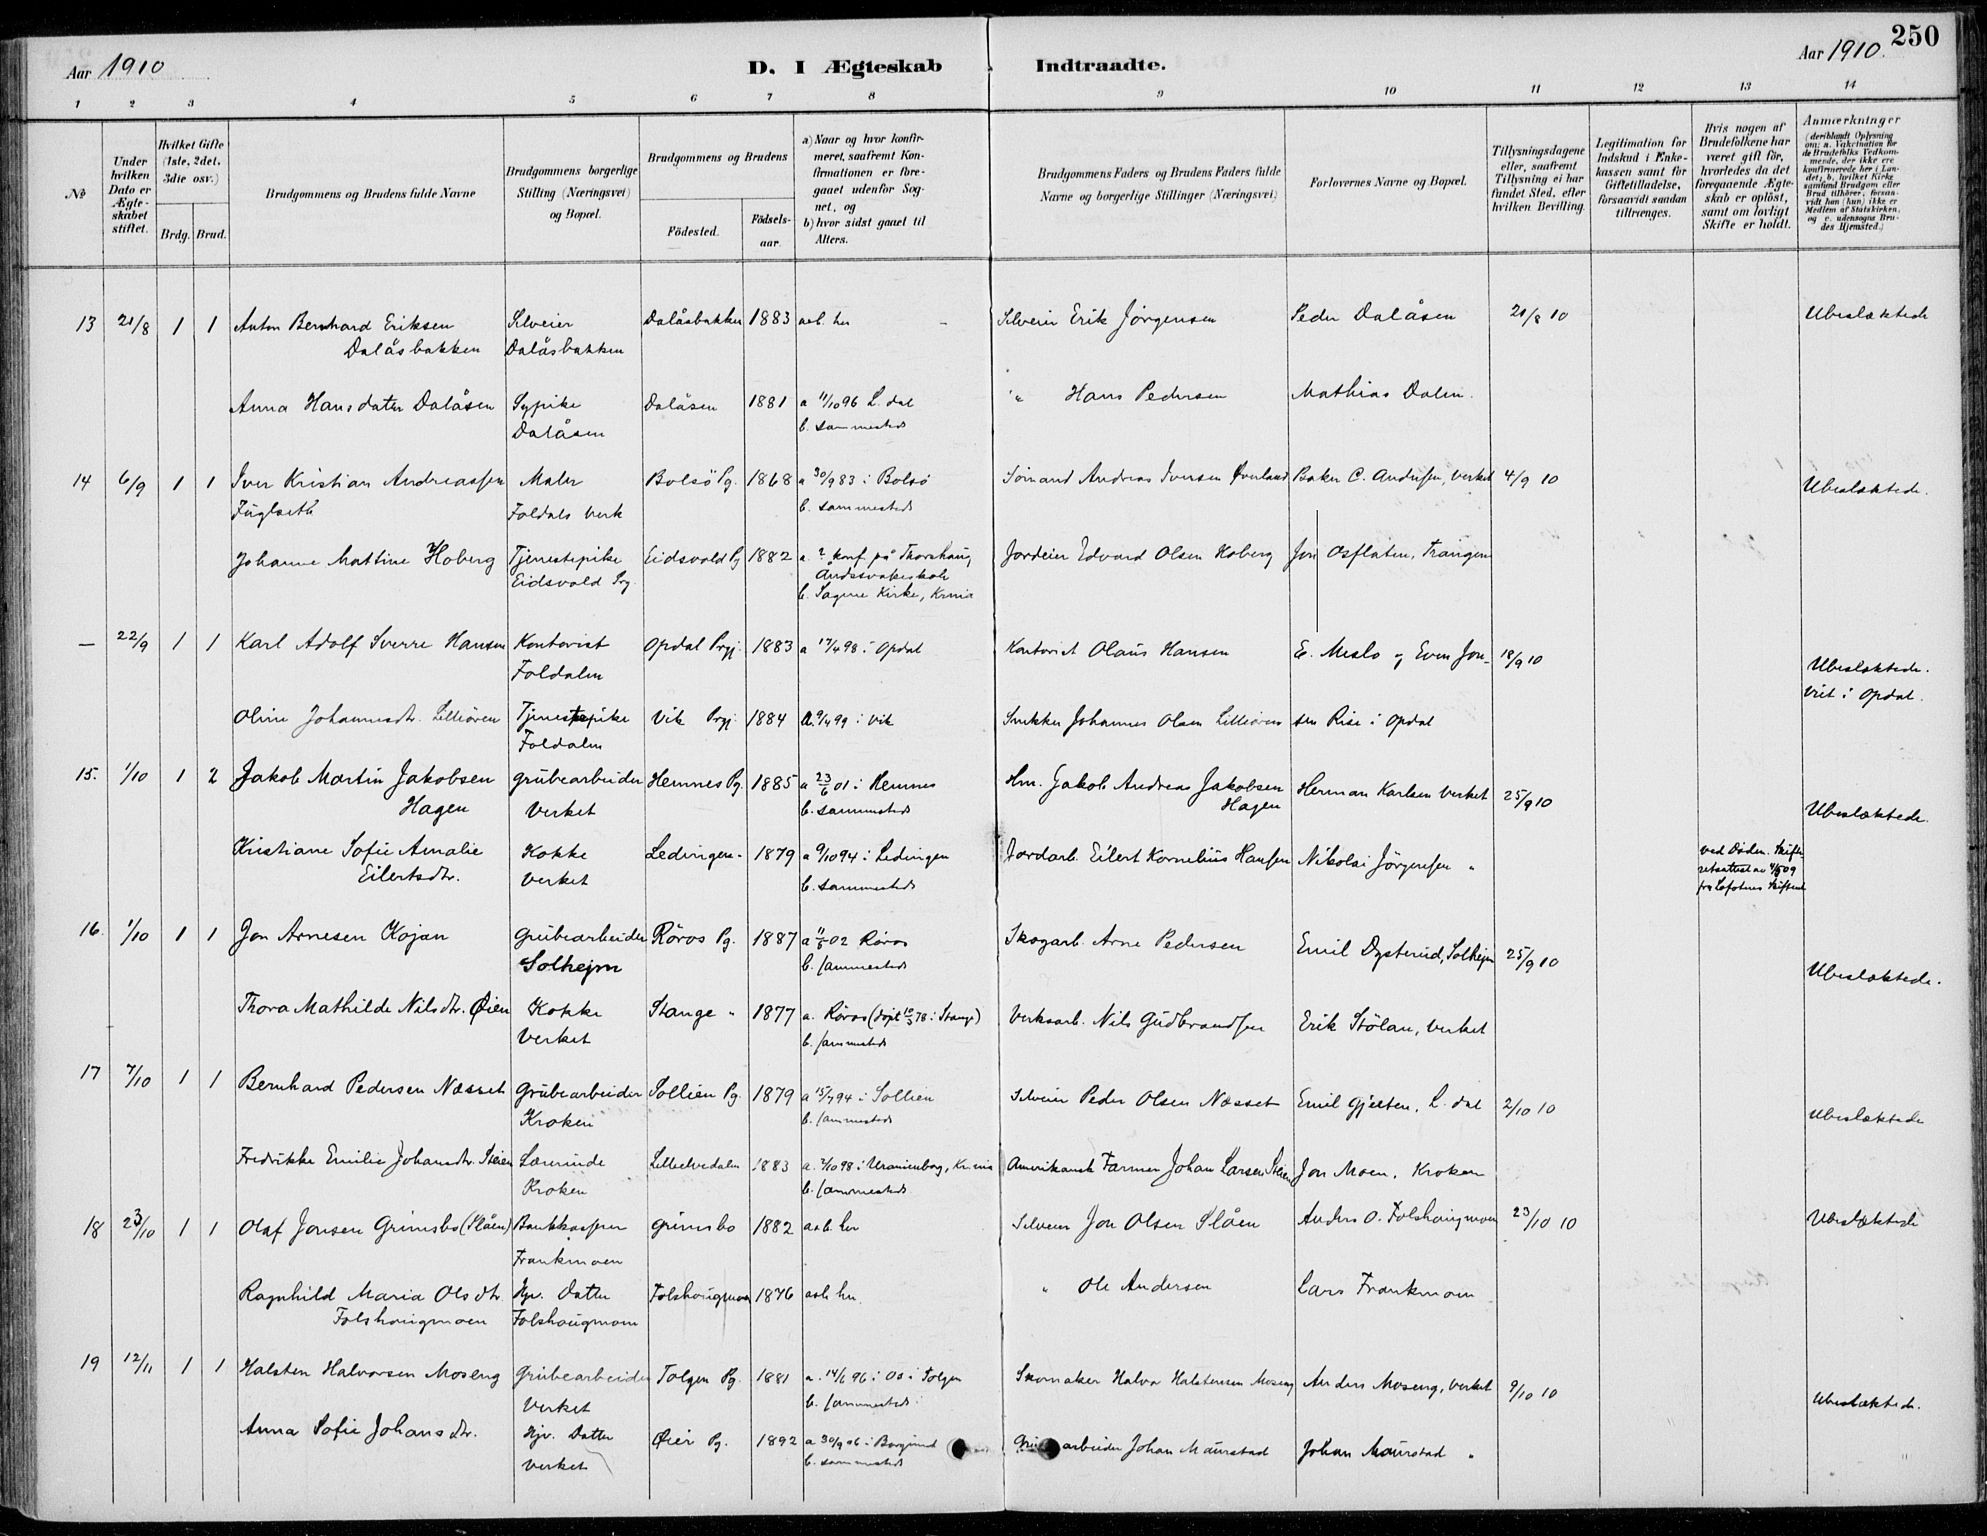 250
Aar 1910
D. I Ægteskab Indtraadte.
Aar 1910.
1 2 3 4 5 6 7 8 9 10 11 12 13 14
No
Under hvilken Dato er Ægteskabet stiftet.
Hvilket Gifte (1ste, 2det, 3die osv.)
Brdg. Brud.
Brudgommens og Brudens fulde Navne
Brudgommens borgerlige Stilling (Næringsvei) og Bopæl.
Brudgommens og Brudens
Födested. Födselsaar.
a) Naar og hvor konfirmeret, saafremt Konfirmationen er foregaaet udenfor Sognet, og
b) hvor sidst gaaet til Alters.
Brudgommens Faders og Brudens Faders fulde Navne og borgerlige Stillinger (Næringsvei)
Forlovernes Navne og Bopæl.
Tillysningsdagene eller, saafremt Tillysning ei har fundet Sted, efter hvilken Bevilling.
Legitimation for Indskud i Enkekassen samt for Giftetilladelse, forsaavidt saadan tiltrænges.
Hvis nogen af Brudefolkene har været gift för, hvorledes da det foregaaende Ægteskab er oplöst, samt om lovligt Skifte er holdt.
Anmærkninger
(deriblandt Oplysning om: a. Vakcination for de Brudefolks Vedkommende, der ikke ere konfirmerede her i Landet; b. hvilket Kirkesamfund Brudgom eller Brud tilhörer, forsaavidt han (hun) ikke er Medlem af Statskirken, og c. udensogns Brudes Hjemsted.)
13 21/8 1 1 Anton Bernhard Eriksen Selveier Dalåsbakken 1883 aab. her Selveier Erik Jörgensen Peder Dalåsen 21/8 10 Ubeslæktede
Dalåsbakken Dalåsbakken
Anna Hansdatter Dalåsen Sypike Dalåsen 1881 a 11/10 96 L. dal " Hans Pedersen Mathias Dalen.
Dalåsen b. sammesteds
14 6/9 1 1 Iver Kristian Andreassen Maler Bolsö Pg. 1868 a 30/9 83 i Bolsö Sömand Andreas Iversen Överland Baker C. Andersen, Verket 4/9 10 Ubeslæktede.
Fuglseth Foldals Verk b. sammesteds
Johanne Mattine Hoberg Tjenestepike Eidsvold Pg 1882 a. ? konf på Thorshaug Jordeier Edvard Olsen Hoberg Jon Osflaten, Trangen
Eidsvold Prg. Åndssvakeskole
b. Sagene Kirke, Krania
— 22/9 1 1 Karl Adolf Sverre Hansen Kontorist Opdal Prgj. 1883 a 17/4 98 i Opdal Kontorist Olaus Hansen E. Meslo og Even Jon- 18/9 10 Ubeslæktede.
Foldalen Viet i Opdal.
Oline Johannesdtr. Lilleören Tjenestepike Vik Prgj. 1884 a. 9/4 99 i Vik Snikker Johannes Olsen Lilleören sen Rise i Opdal
Foldalen
15. 1/10 1 2 Jakob Martin Jakobsen Grubearbeider Hemnes Pg. 1885 a 23/6 01 i Hemnes Hm. Jakob Andreas Jakobsen Herman Karlsen Verket 25/9 10 Ubeslæktede.
Hagen Verket b. sammesteds Hagen
Kristiane Sofie Amalie Kokke Lödingen " 1879 a 9/10 94 i Lödingen Jordarb. Eilert Kornelius Hansen Nikolai Jörgensen " ved Döden. Skifte-
Eilertsdtr. Verket b. sammesteds
16. 1/10 1 1 Jon Arnesen Kojan Grubearbeider Röros Pg. 1887 a 11/5 02 Röros Skogarb. Arne Pedersen Emil Dysterud, Solhejm 25/9 10 Ubeslæktede.
Solhejm b. sammesteds
Thora Mathilde Nilsdtr. Øien Kokke Stange " 1877 a. Röros (döpt 10/3 78 i Stange) Verksarb. Nils Gudbrandsen Erik Stölan, Verket
Verket b. sammesteds
17 7/10 1 1 Bernhard Pedersen Næsset Grubearbeider Sollien Pg. 1879 a 15/7 94 i Sollien Selveier Peder Olsen Næsset Emil Gjelten, L. dal 2/10 10 Ubeslæktede
Kroken b. sammesteds
Fredrikke Emilie Johansdtr. Steien Lærerinde Lilleelvedalen 1883 a. 2/10 98 i Uranienborg, Krania Amerikansk Farmer Johan Larsen Steien Jon Moen, Kroken
Kroken b. sammesteds
18 23/10 1 1 Olaf Jonsen Grimsbo (Slåen) Bankkasserer Grimsbo 1882 aab. her Selveier Jon Olsen Slåen Anders O. Folshaugmoen 23/10 10 Ubeslæktede
Frankmoen
Ragnhild Maria Olsdtr. Hjv. Datter Folshaugmoen 1876 aab. her. " Ole Andersen Lars Frankmoen
Folshaugmoen Folshaugmoen
19 12/11 1 1 Halsten Halvorsen Moseng Grubearbeider Tolgen Pg. 1881 a. 14/6 96 i Os i Tolgen Skomaker Halvor Halstensen Moseng Anders Moseng, Verket 9/10 10 Ubeslæktede.
Verket b. sammesteds
Anna Sofie Johansdtr. Hjv. Datter Øier Pg. 1892 a 30/9 06 i Borgund arbeider Johan Maurstad Johan Maurstad "
Verket b. sammesteds